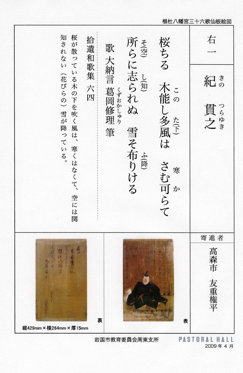 椙杜八幡宮三十六歌仙板絵図
右一
紀貫之
きの つらゆき
桜ちる 木能し多風は さむ可らて
この た(下) 寒 か
所らに志られぬ 雪そ布りける
そ(空) し(知) ふ(降)
歌 大納言 葛岡修理 筆
くずおかしゅり
拾遺和歌集 六四
桜が散っている木の下を吹く風は、寒くはなくて、空には関
知されない(花びらの)雪が降っている。
寄進者
高森市 友重権平
裏
表
縦429mm×横264mm×厚15mm
岩国市教育委員会周東支所
PASTORAL HALL
2009年4月